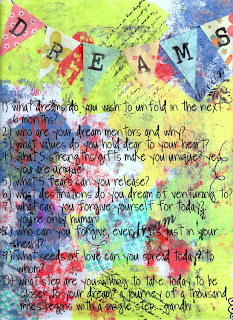 DREAMS
1) what dreams do you wish to unfold in the next
6 months?
2) who are your dream mentors and why?
3) what values do you hold dear to your heart?
4) what strengths/gifts make you unique? yes
you are unique
5) what fears can you release?
6) what destinations do you dream of venturing to?
7) what can you forgive yourself for today?
you're only human
8) who can you forgive, even if it's just in your
heart?
9) what seeds of love can you spread today? to
whom?
10) what step are you willing to take today to be
closer to your dream? a journey of a thousand
miles begins with a single step. gandhi